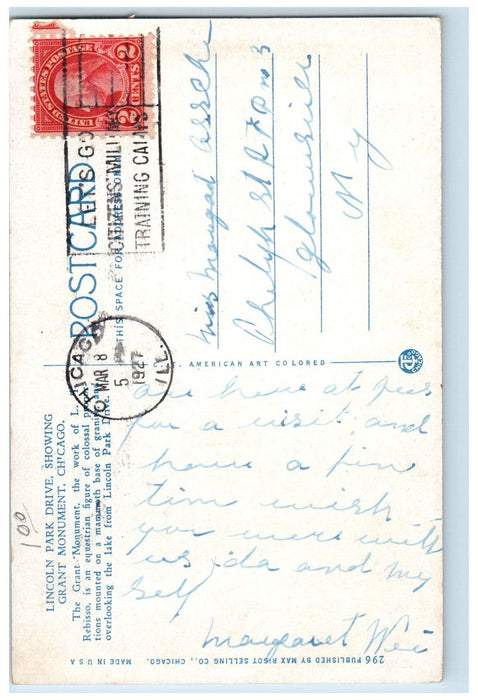 UNITED STATES POSTAGE
2 CENTS 2
LET'S GO
CITIZENS' MILITARY
TRAINING CAMPS
CHICAGO, ILL.
MAR 8
5 P
1927
POSTCARD
THIS SPACE FOR ADDRESS ONLY
Miss
R D no 3
N Y
AMERICAN ART COLORED
LINCOLN PARK DRIVE, SHOWING
GRANT MONUMENT, CHICAGO.
The Grant Monument, the work of L. T.
Rebisso, is an equestrian figure of colossal propor-
tions mounted on a mammoth base of granite and
overlooking the lake from Lincoln Park Drive.
1 00
are here at
for a visit and
have a fin
tim wish
you were with
us ida and my
self
Margaret
296 PUBLISHED BY MAX RIGOT SELLING CO., CHICAGO.
MADE IN U S A